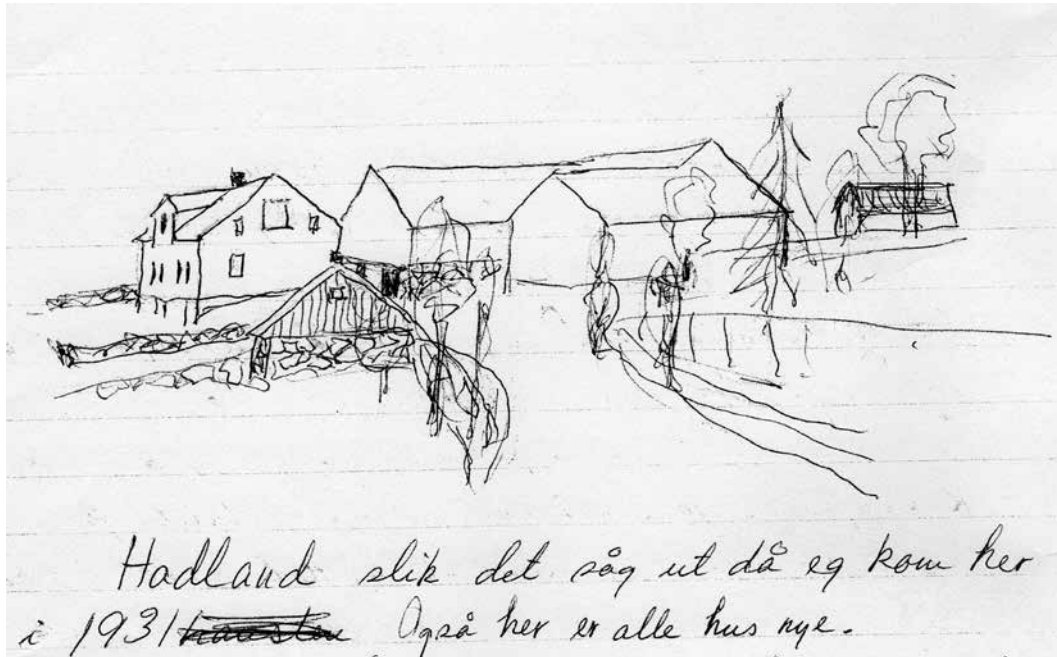 Hadland slik det såg ut då eg kom her
i 1931 hausten Også her er alle hus nye.